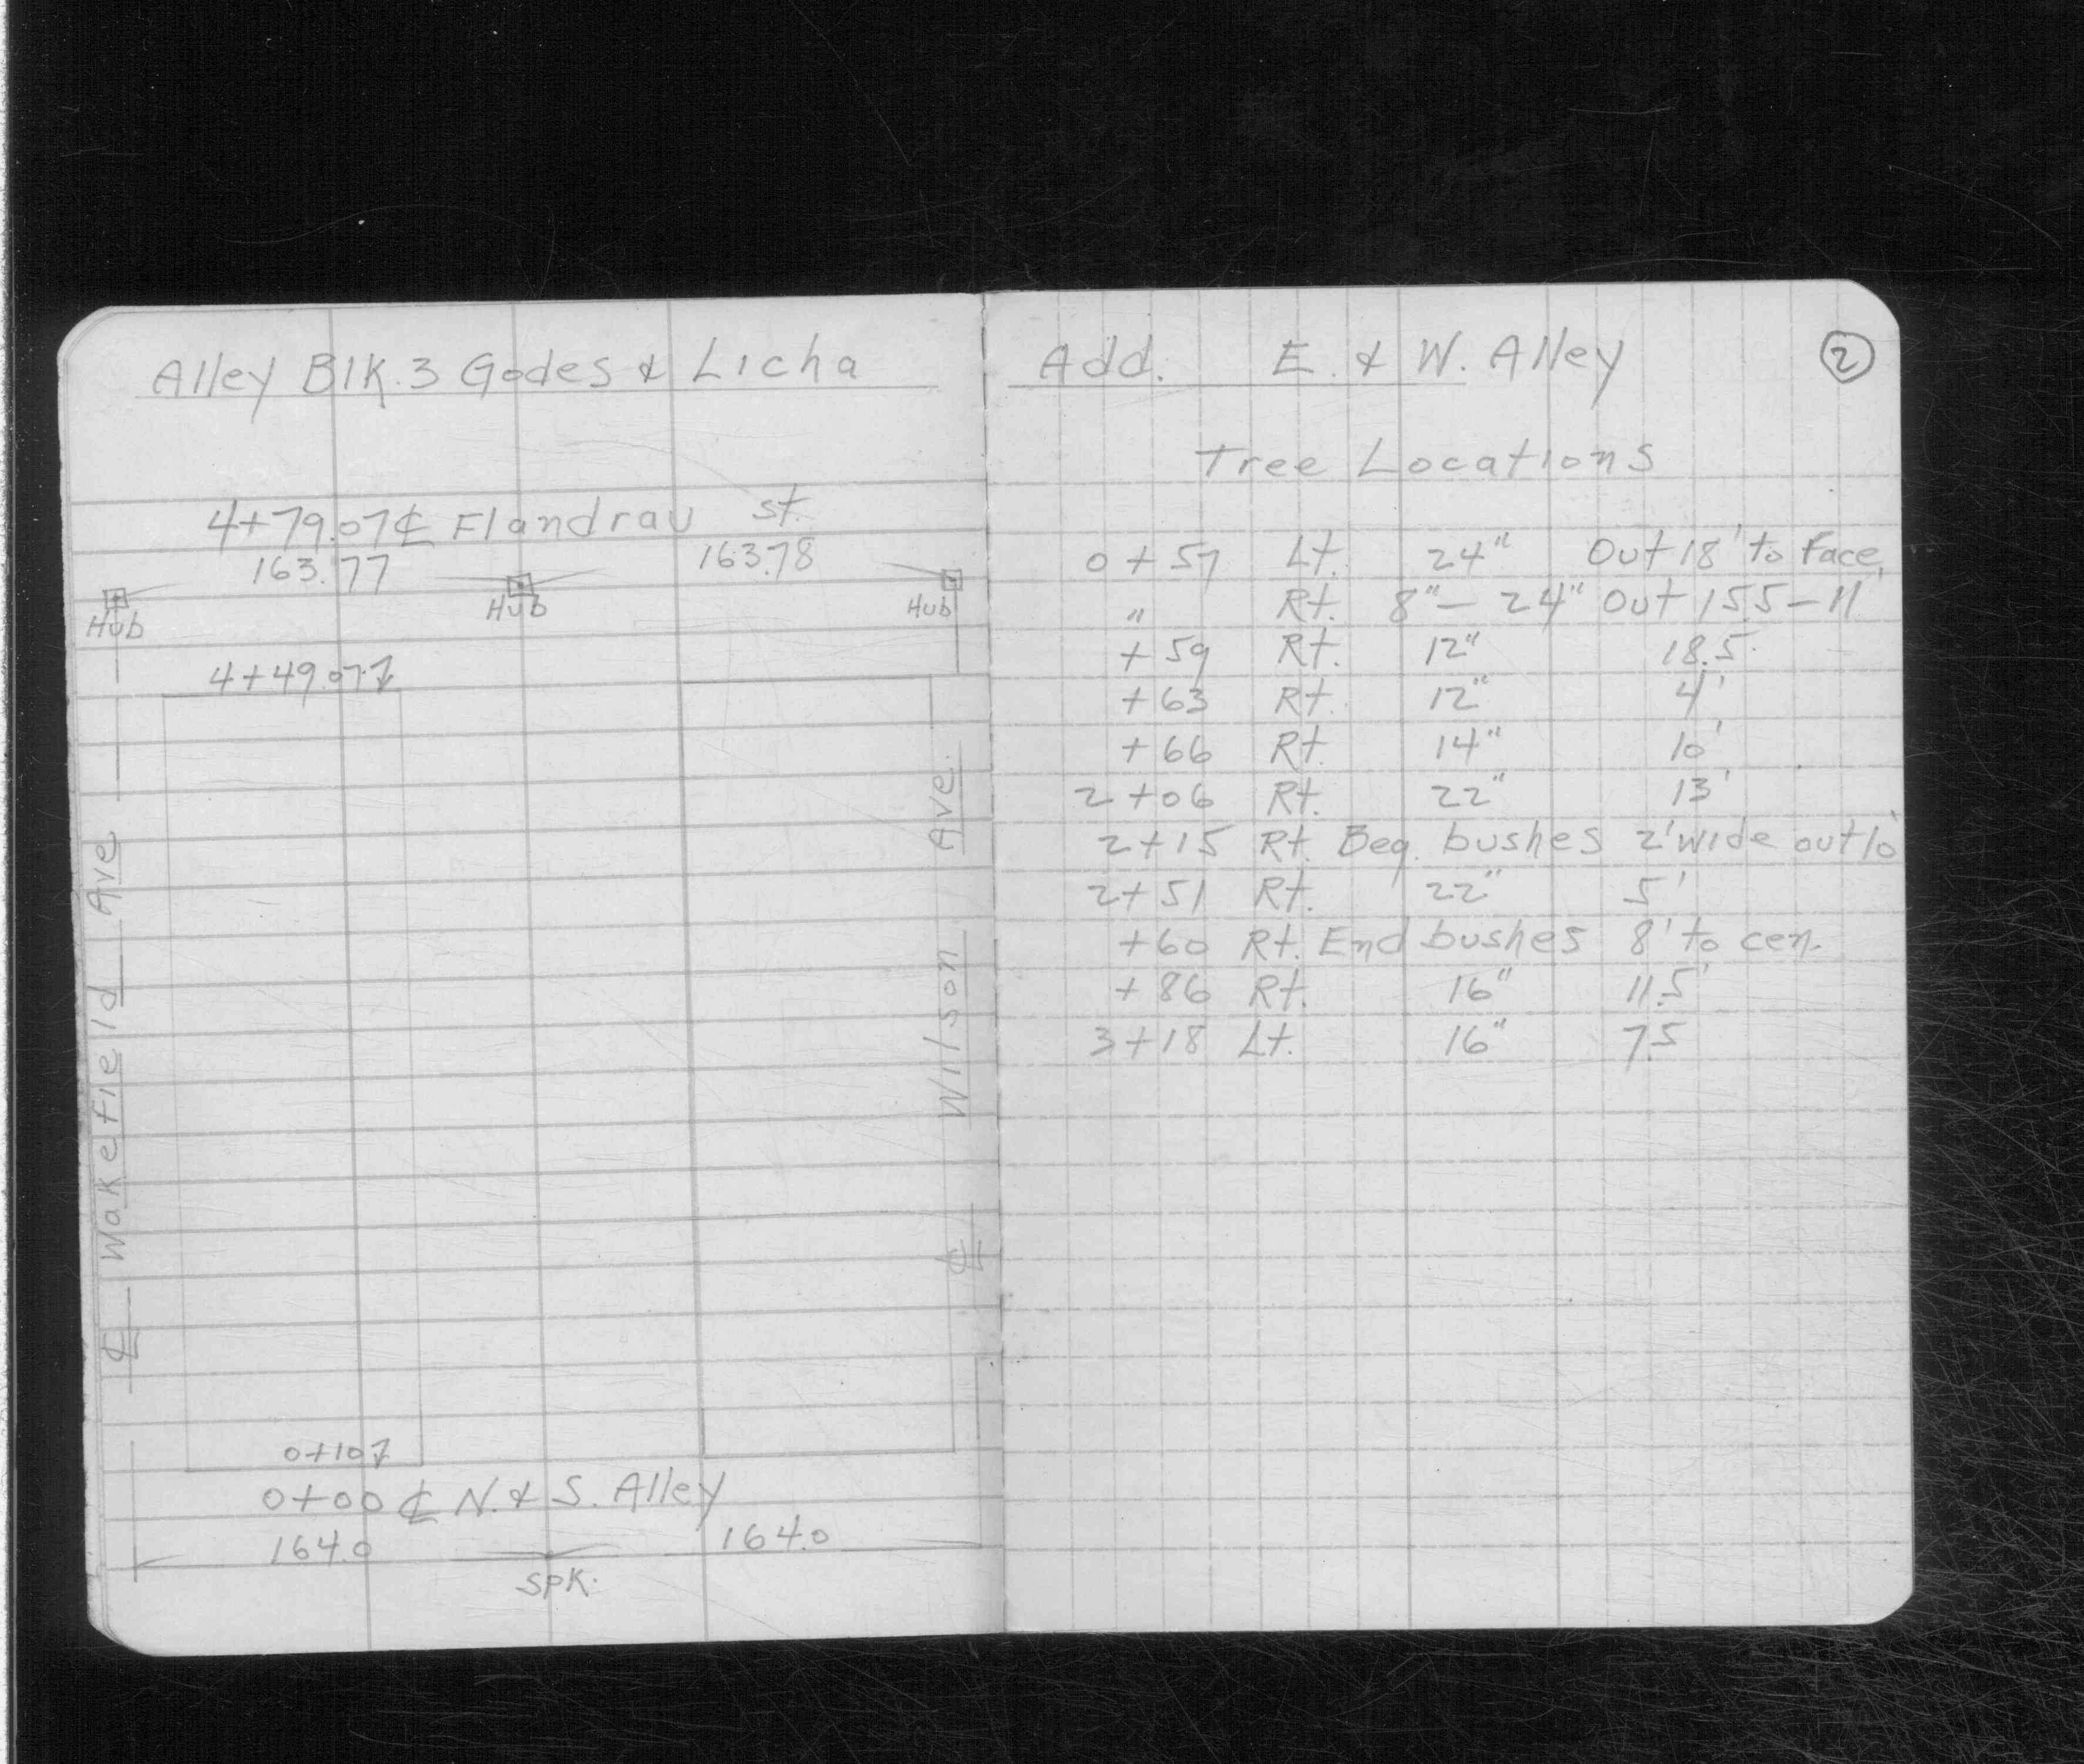 Alley Blk. 3 Godes & Licha
4+79.07 ℄ Flandrau St.
163.77 163.78
Hub Hub Hub
4+49.07
℄ Wakefield Ave
℄ Wilson Ave.
0+10
0+00 ℄ N. & S. Alley
164.0 164.0
SPK.
Add. E. & W. Alley 2
Tree Locations
0+57 Lt. 24" Out 18' to Face
" Rt. 8"-24" Out 15.5-11'
+59 Rt. 12" 18.5
+63 Rt. 12" 4'
+66 Rt. 14" 10'
2+06 Rt. 22" 13'
2+15 Rt. Beg. bushes 2' wide out 10'
2+51 Rt. 22" 5'
+60 Rt. End bushes 8' to cen.
+86 Rt. 16" 11.5'
3+18 Lt. 16" 7.5